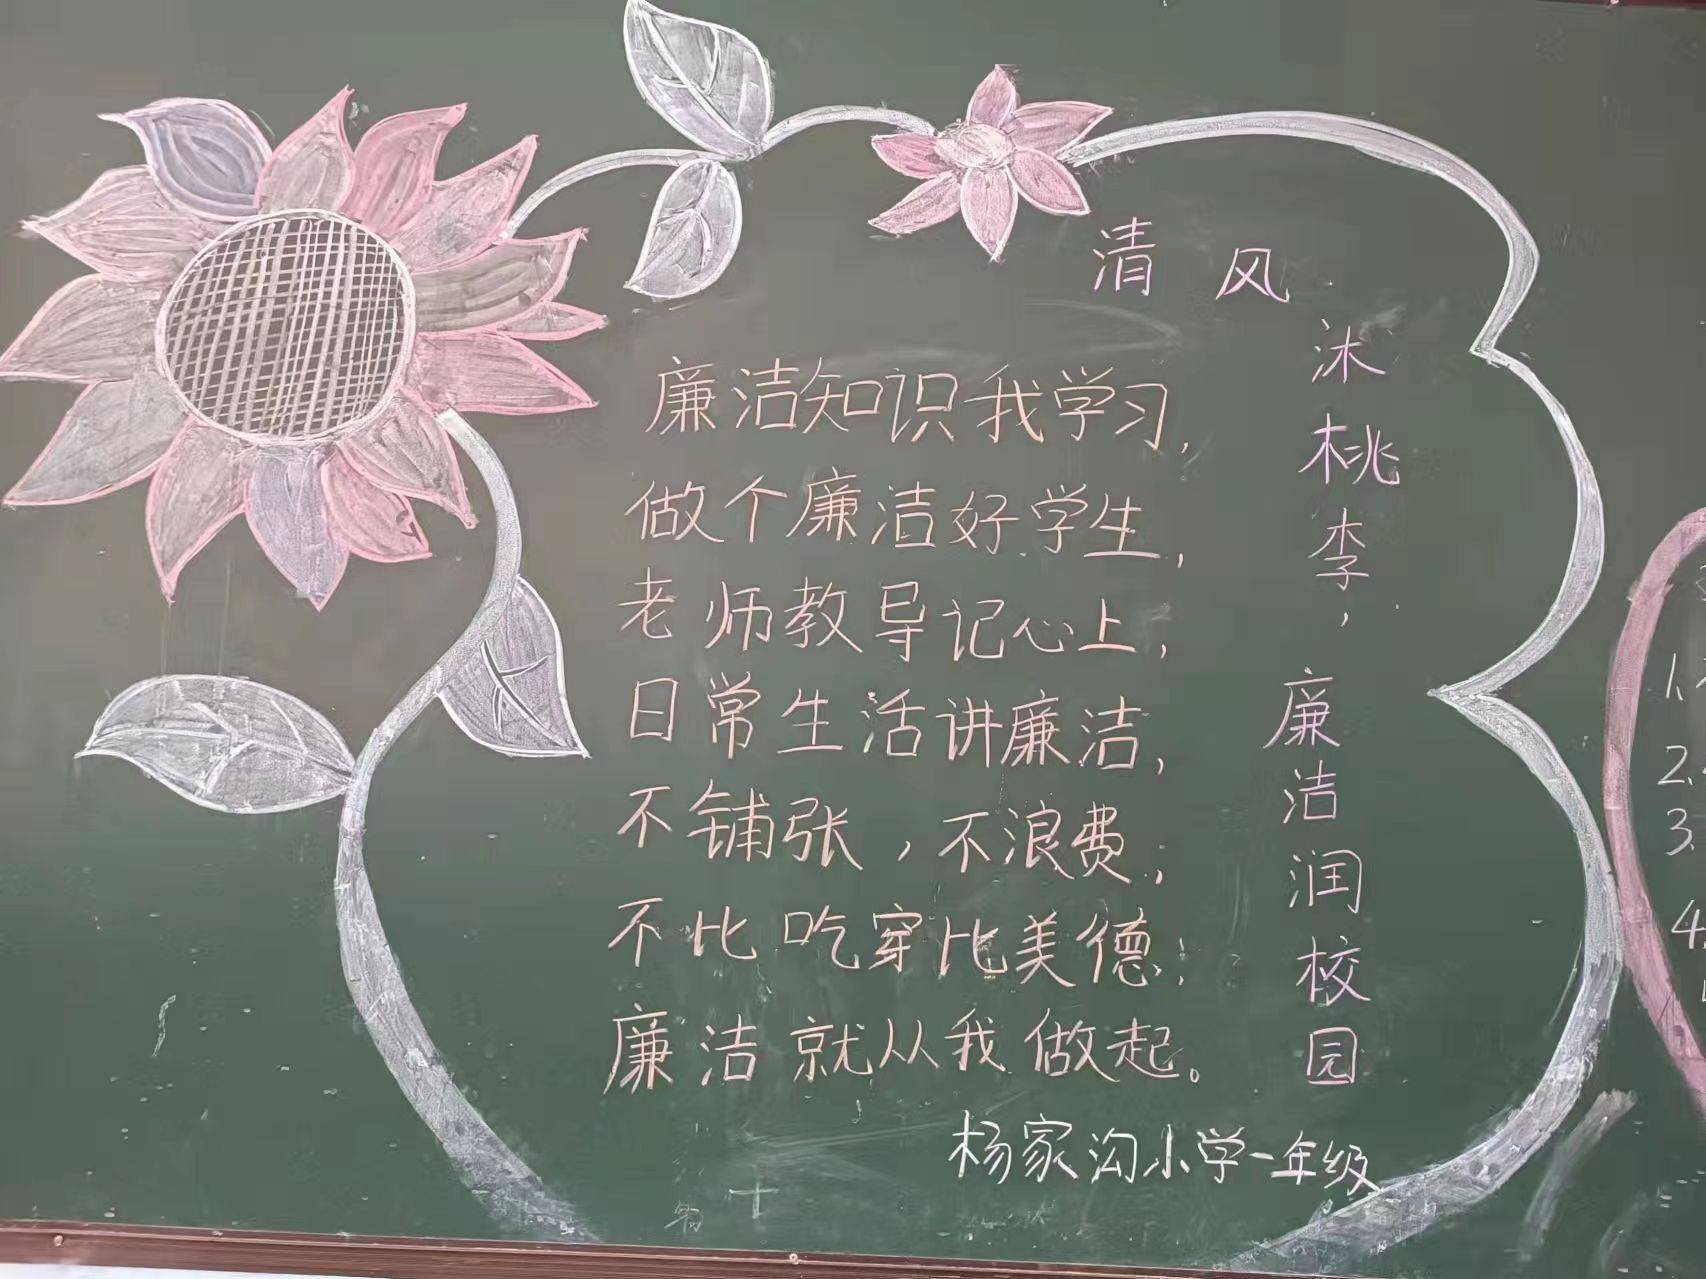 清风
沐桃李，
廉洁润校园
廉洁知识我学习，
做个廉洁好学生，
老师教导记心上，
日常生活讲廉洁，
不铺张，不浪费；
不比吃穿比美德；
廉洁就从我做起。
杨家沟小学一年级
1.
2.
3.
4.